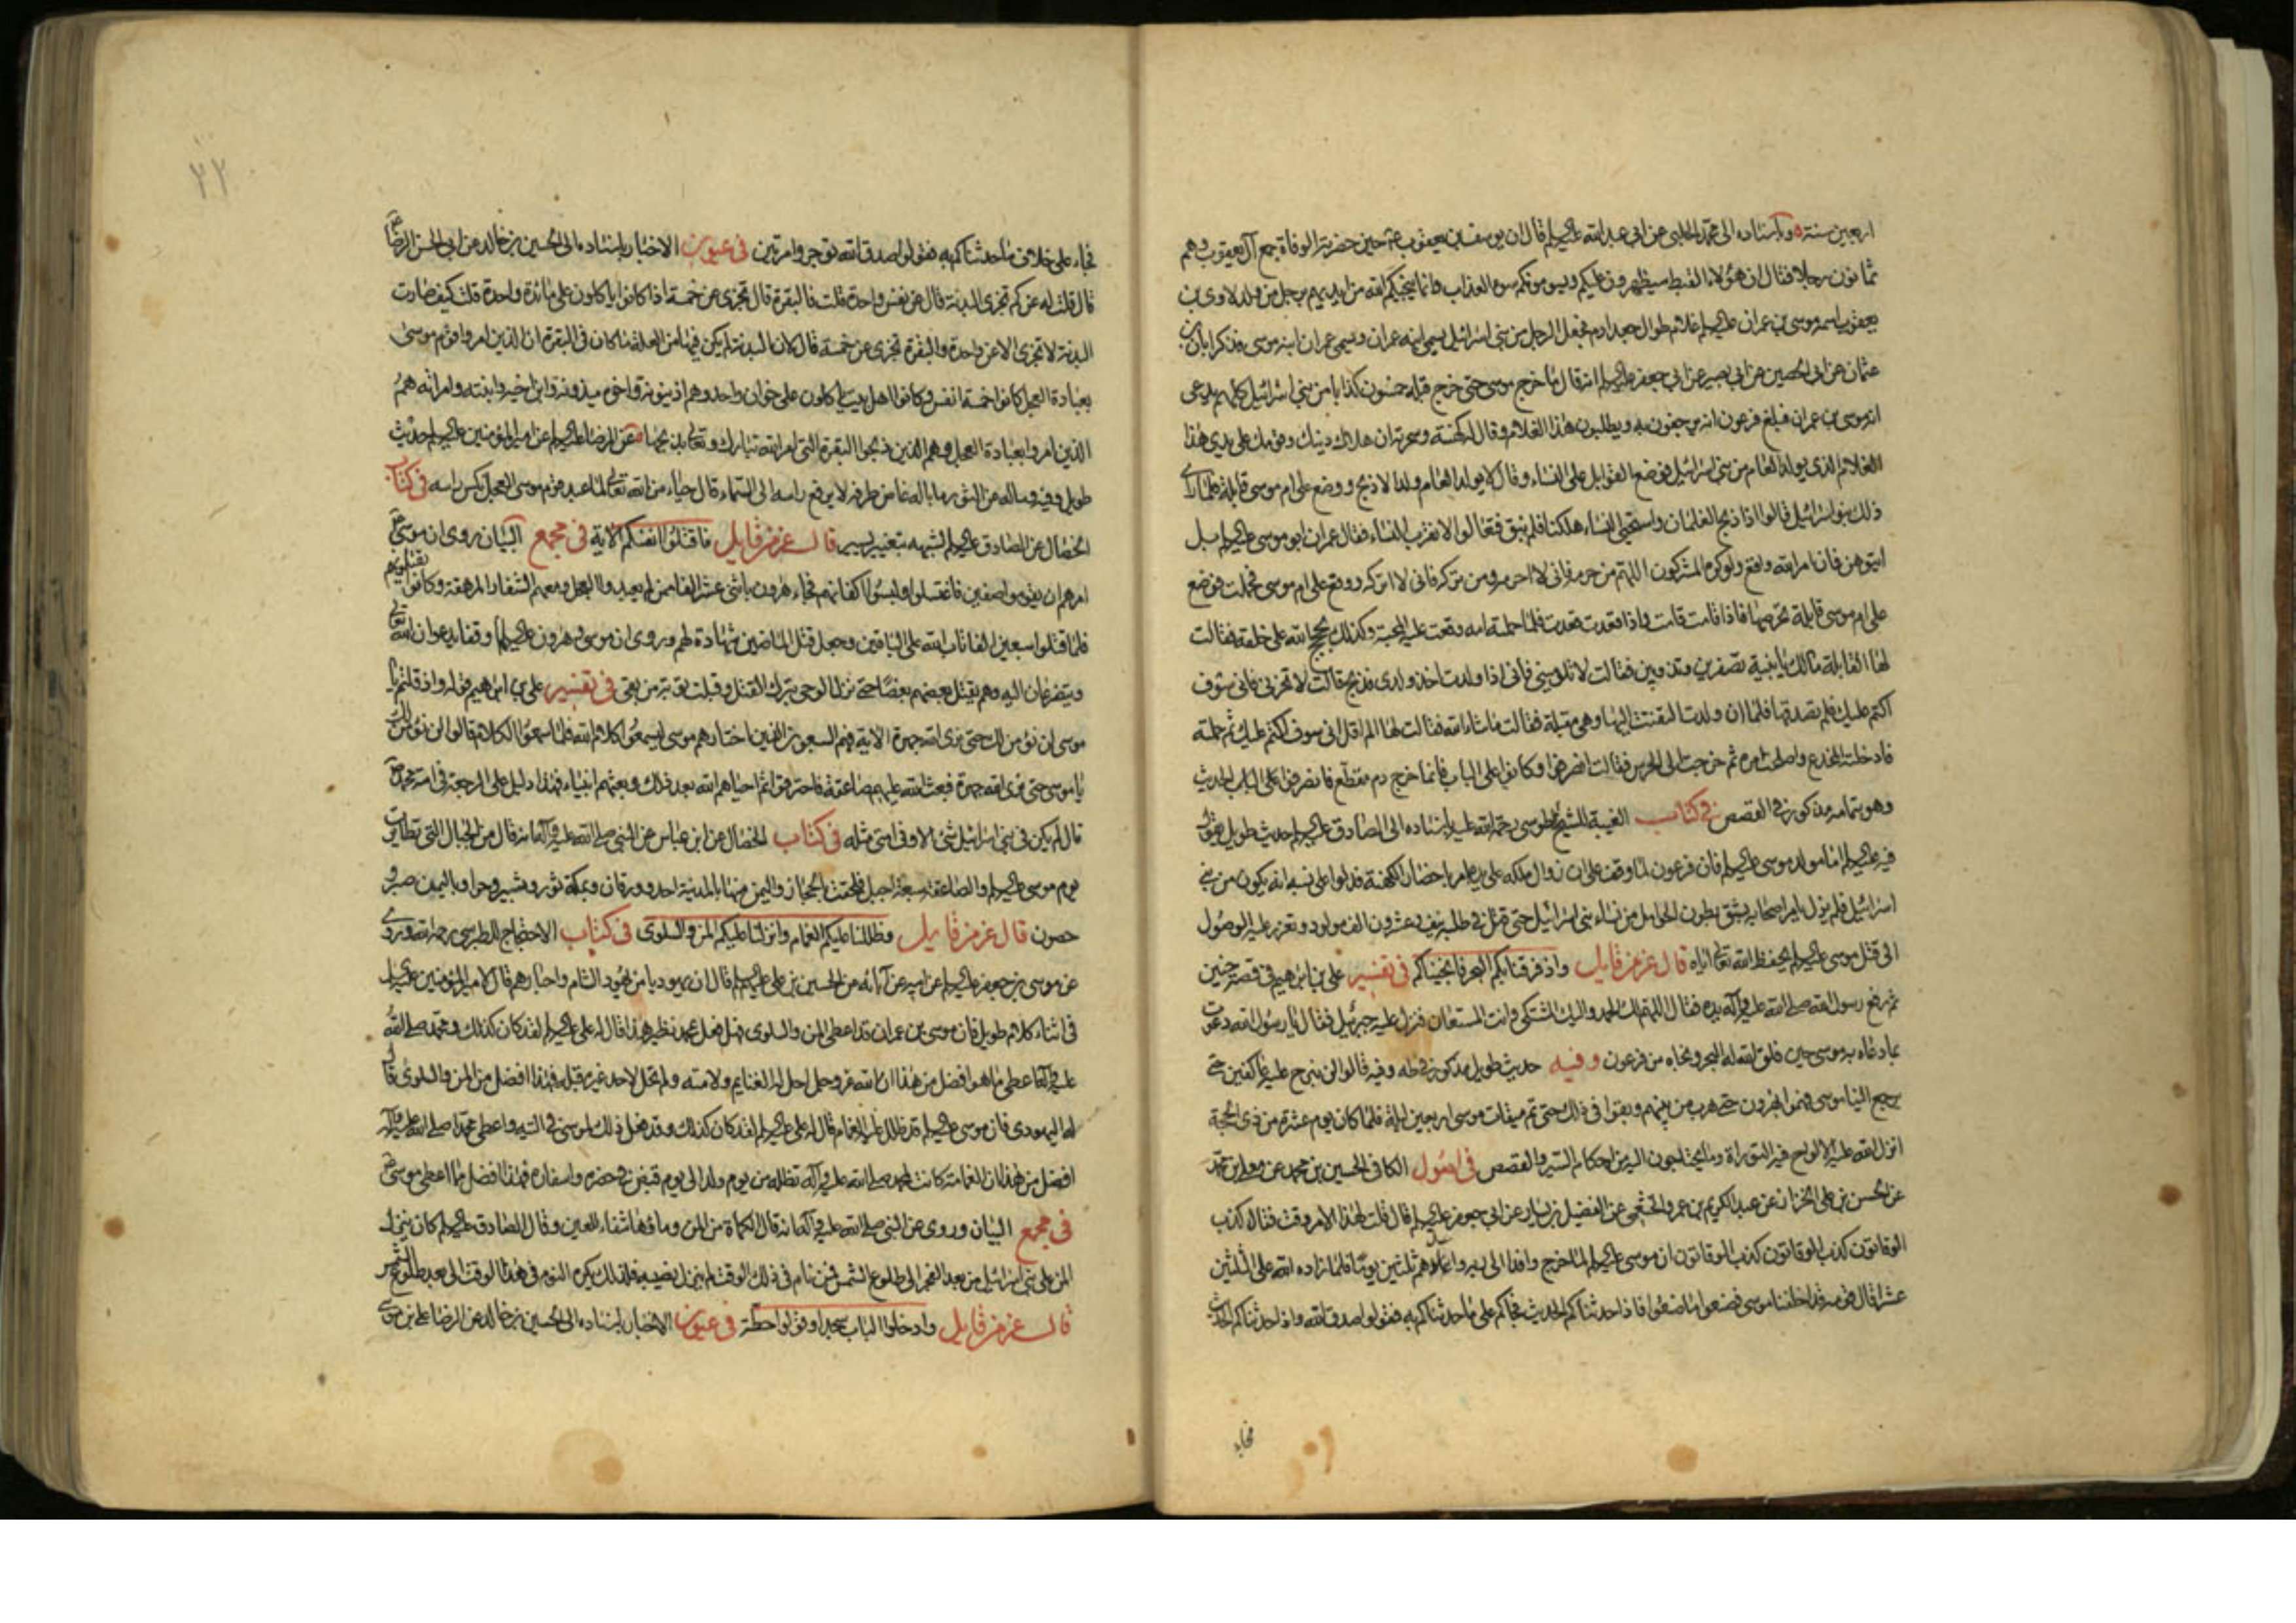 اربعين سنة وباسناده الى محمد الحلبي عن ابى عبد الله عليه السلام قال ان يوسف بن يعقوب حين حضرته الوفاة جمع آل يعقوب وهم
ثمانون رجلا فقال ان هؤلاء القبط سيظهرون عليكم ويسومونكم سوء العذاب وانما ينجيكم الله من ايديهم برجل من ولد لاوى بن
يعقوب اسمه موسى بن عمران عليه السلم غلام طوال جعد ادم فجعل الرجل من بنى اسرائيل يسمى ابنه عمران ويسمى عمران ابنه موسى فذكر ابان بن
عثمان عن ابى الحصين عن ابى بصير عن ابى جعفر عليه السلم انه قال ما خرج موسى حتى خرج قبله خمسون كذابا من بنى اسرائيل كلهم يدعى
انه موسى بن عمران فبلغ فرعون انهم يرجفون به ويطلبون هذا الغلام وقال له كهنته وسحرته ان هلاك دينك وقومك على يدى هذا
الغلام الذى يولد العام من بنى اسرائيل فوضع القوابل على النساء وقال لا يولد العام ولد الا ذبح ووضع على ام موسى قابلة فلما راى
ذلك بنو اسرائيل قالوا اذا ذبح الغلمان واستحيى النساء هلكنا فلم نبق فتعالوا لا نقرب النساء فقال عمران ابو موسى عليه السلم بل
ايتوهن فان امر الله واقع ولو كره المشركون اللهم من حرمه فانى لا احرمه ومن تركه فانى لا اتركه ووقع على ام موسى فحملت فوضع
على ام موسى قابلة تحرسها فاذا قامت قامت واذا قعدت قعدت فلما حملته امه وقعت عليه المحبة وكذلك حجج الله على خلقه فقالت
لها القابلة مالك يا بنية تصفرين وتذوبين فقالت لا تلومينى فانى اذا ولدت اخذ ولدى فذبح قالت لا تحزنى فانى سوف
اكتم عليك فلم تصدقها فلما ان ولدت التفتت اليها وهى مقبلة فقالت ما شاء الله فقالت لها الم اقل انى سوف اكتم عليك ثم حملته
فادخلته المخدع واصلحت امره ثم خرجت الى الحرس فقالت انصرفوا وكانوا على الباب فانما خرج دم متقطع فانصرفوا على الباب الحديث
وهو بتمامه مذكور فى القصص فى كتاب الغيبة للشيخ الطوسى رحمة الله عليه باسناده الى الصادق عليه السلم حديث طويل يقول
فيه عليه السلم اما مولد موسى عليه السلم فان فرعون لما وقف على ان زوال ملكه على يده امر باحضار الكهنة فدلوا على نسبه انه يكون من بنى
اسرائيل فلم يزل يامر اصحابه بشق بطون الحوامل من نساء بنى اسرائيل حتى قتل فى طلبه نيف وعشرون الف مولود وتعذر عليه الوصول
الى قتل موسى عليه السلم بحفظ الله تعالى اياه قال عز من قايل واذ فرقنا بكم البحر فانجيناكم فى تفسير على بن ابراهيم فى قصة حنين
ثم رفع رسول الله صلى الله عليه وآله يده فقال اللهم لك الحمد واليك المشتكى وانت المستعان فنزل عليه جبرئيل فقال يا رسول الله دعوت
بما دعاه به موسى حين فلق الله له البحر ونجاه من فرعون وفيه حديث طويل مذكور فى طه وفيه قالوا لن نبرح عليه عاكفين حتى
يرجع الينا موسى فهموا بهرون حتى هرب من بينهم وبقوا فى ذلك حتى تم ميقات موسى اربعين ليلة فلما كان يوم عشرة من ذى الحجة
انزل الله عليه الالواح فيه التوراة وما يحتاجون اليه من احكام السير والقصص فى اصول الكافى الحسين بن محمد عن معلى بن محمد
عن الحسن بن على الخزاز عن عبد الكريم بن عمرو الخثعمى عن الفضيل بن يسار عن ابى جعفر عليه السلم قال قلت لهذا الامر وقت فقال كذب
الوقاتون كذب الوقاتون كذب الوقاتون ان موسى عليه السلم لما خرج وافدا الى ربه واعدهم ثلثين يوما فلما زاده الله على الثلثين
عشرا قال قومه قد اخلفنا موسى فصنعوا ما صنعوا فاذا حدثناكم الحديث فجاكم على ما حدثناكم به فقولوا صدق الله واذا حدثناكم الحديث
فجاء
٢٢
فجاء على خلاف ما حدثناكم به فقولوا صدق الله توجروا مرتين فى عيون الاخبار باسناده الى الحسين بن خالد عن ابى الحسن الرضا
قال قلت له عن كم تجزى البدنة قال عن نفس واحدة قلت فالبقرة قال تجزى عن خمسة اذا كانوا ياكلون على مائدة واحدة قلت كيف صارت
البدنة لا تجزى الا عن واحدة والبقرة تجزى عن خمسة قال لان البدنة لم يكن فيها من العلة ما كان فى البقرة ان الذين امروا قوم موسى
بعبادة العجل كانوا خمسة انفس وكانوا اهل بيت ياكلون على خوان واحد وهم اذينونة واخوه ميذونة وابن اخيه وابنته وامراته هم
الذين امروا بعبادة العجل وهم الذين ذبحوا البقرة التى امر الله تبارك وتعالى بذبحها عن الرضا عليه السلم عن امير المؤمنين عليه السلم حديث
طويل وفيه وساله عن الثور ما باله غاض طرفه لا يرفع راسه الى السماء قال حياء من الله تعالى لما عبد قوم موسى العجل نكس راسه فى كتاب
الخصال عن الصادق عليه السلم شبهه بتغيير يسير قال عز من قايل فاقتلوا انفسكم الاية فى مجمع البيان روى ان موسى
امرهم ان يقوموا صفين فاغتسلوا ولبسوا اكفانهم فجاء هرون باثنى عشر الفا ممن لم يعبدوا العجل ومعهم الشفار المرهفة وكانوا يقتلونهم
فلما قتلوا سبعين الفا تاب الله على الباقين وجعل قتل الماضين شهادة لهم وروى ان موسى وهرون عليهما السلم وقفا يدعوان الله تعالى
ويتضرعان اليه وهم يقتل بعضهم بعضا حتى نزل الوحى بترك القتل وقبلت توبة من بقى فى تفسير على بن ابراهيم قوله واذ قلتم يا
موسى لن نؤمن لك حتى نرى الله جهرة الاية فهم السبعون الذين اختارهم موسى ليسمعوا كلام الله فلما سمعوا الكلام قالوا لن نؤمن لك
يا موسى حتى نرى الله جهرة فبعث الله عليهم صاعقة فاحترقوا ثم احياهم الله بعد ذلك وبعثهم انبياء فهذا دليل على الرجعة فى امة محمد
قال لم يكن فى بنى اسرائيل شئ الا وفى امتى مثله فى كتاب الخصال عن ابن عباس عن النبى صلى الله عليه وآله انه قال من الجبال التى تطايرت
يوم موسى عليه السلم والصاعقة سبعة اجبل فلحقت بالحجاز واليمن منها بالمدينة احد وورقان وبمكة ثور وثبير وحرا وباليمن صبر و
حصون قال عز من قايل وظللنا عليكم الغمام وانزلنا عليكم المن والسلوى فى كتاب الاحتجاج للطبرسى رحمه الله وروى
عن موسى بن جعفر عليه السلم عن ابيه عن آبائه عن الحسين بن على عليه السلم قال ان يهوديا من يهود الشام واحبارهم قال لامير المؤمنين عليه السلم
فى اثناء كلام طويل فان موسى بن عمران قد اعطى المن والسلوى فهل فعل بمحمد نظير هذا قال له على عليه السلم لقد كان كذلك ومحمد صلى الله
عليه وآله اعطى ما هو افضل من هذا ان الله عز وجل احل له الغنايم ولامته ولم تحل لاحد غيره قبله فهذا افضل من المن والسلوى قال
له اليهودى فان موسى عليه السلم قد ظلل عليه الغمام قال له على عليه السلم لقد كان كذلك وقد فعل ذلك لموسى فى التيه واعطى محمد صلى الله عليه وآله
افضل من هذا ان الغمامة كانت لمحمد صلى الله عليه وآله تظله من يوم ولد الى يوم قبض فى حضره واسفاره فهذا افضل مما اعطى موسى
فى مجمع البيان وروى عن النبى صلى الله عليه وآله انه قال الكماة من المن وماؤها شفاء للعين وقال الصادق عليه السلم كان ينزل
المن على بنى اسرائيل من بعد الفجر الى طلوع الشمس فمن نام فى ذلك الوقت لم ينزل نصيبه فلذلك يكره النوم فى هذا الوقت الى بعد طلوع الشمس
قال عز من قايل وادخلوا الباب سجدا وقولوا حطة فى عيون الاخبار باسناده الى الحسين بن خالد عن الرضا على بن موسى